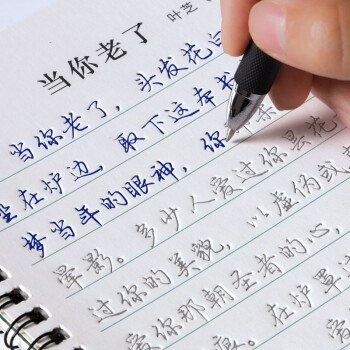 当你老了
叶芝
当你老了，头发花
坐在炉边，取下这本书
梦当年的眼神，你那柔
晕影。多少人爱过你昙花
过你的美貌，以虚伪或
爱你那朝圣者的心，
痕。在炉罩